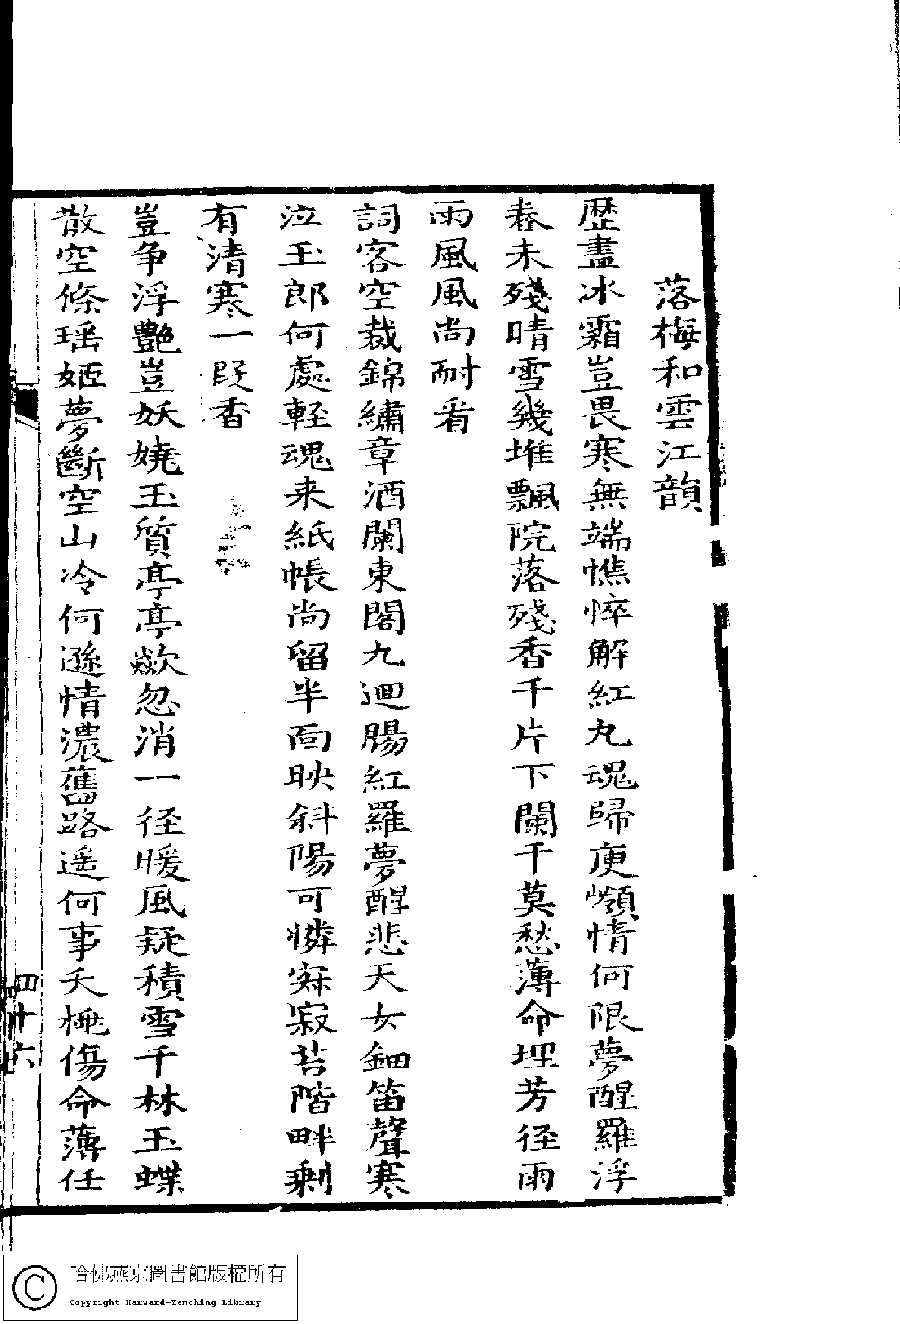 落梅和雲江韻
歷盡冰霜豈畏寒無端憔悴解紅丸魂歸庾嶺情何限夢醒羅浮
春未殘晴雪幾堆飄院落殘香千片下闌干莫愁薄命埋芳径雨
雨風風尚耐看
詞客空裁錦繡章酒闌東閣九迴腸紅羅夢醒悲天女鈿笛聲寒
泣玉郎何處輕魂来紙帳尚留半面映斜陽可憐寂寂苔階畔剩
有清寒一段香
豈争浮艷豈妖嬈玉質亭亭歘忽消一径暖風疑積雪千林玉蝶
散空條瑶姬夢斷空山冷何遜情濃舊路遥何事夭桃傷命薄任
四十六
哈佛燕京圖書館版權所有
Copyright Harvard-Yenching Library